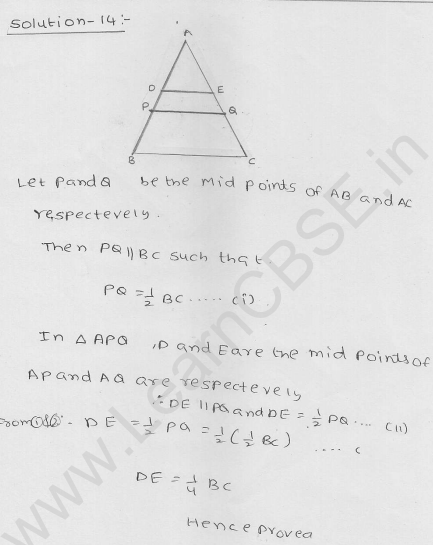 Solution-14:-
A
D E
P Q
B C
Let P and Q be the mid points of AB and AC
respectevely.
Then PQ || BC such that.
PQ = 1/2 BC ..... (i)
In △ APQ , D and E are the mid points of
AP and AQ are respectevely
∴ DE || PQ and DE = 1/2 PQ .... (ii)
From ① & ② - DE = 1/2 PQ = 1/2 (1/2 BC) .... (
DE = 1/4 BC
Hence proved
www.LearnCBSE.in